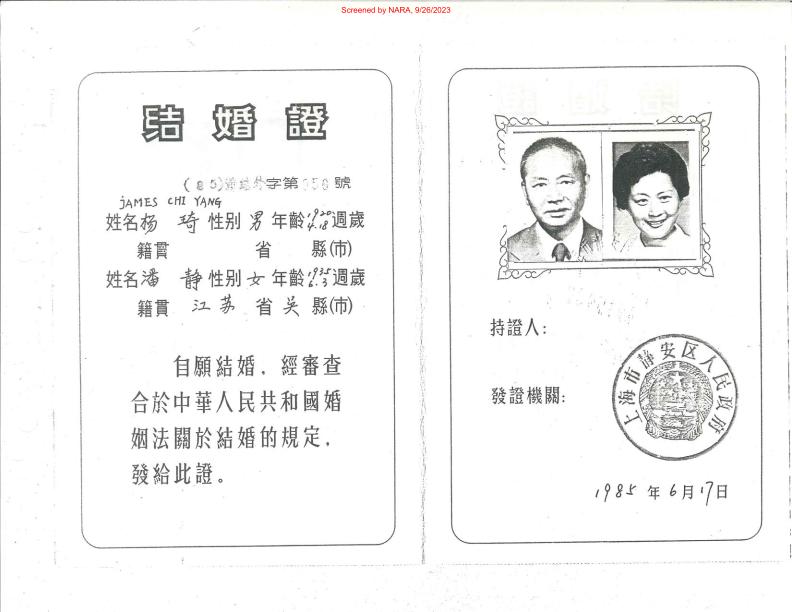 Screened by NARA, 9/26/2023
结婚證
(85) 字第056號
JAMES CHI YANG
姓名杨 琦 性别男 年齡1920 4.18週歲
籍貫 省 縣(市)
姓名潘 靜 性别女 年齡1925 6.3週歲
籍貫 江苏 省 吴 縣(市)
自願結婚，經審查
合於中華人民共和國婚
姻法關於結婚的規定，
發給此證。
持證人：
發證機關：
上海市静安区人民政府
1985 年 6 月 17 日